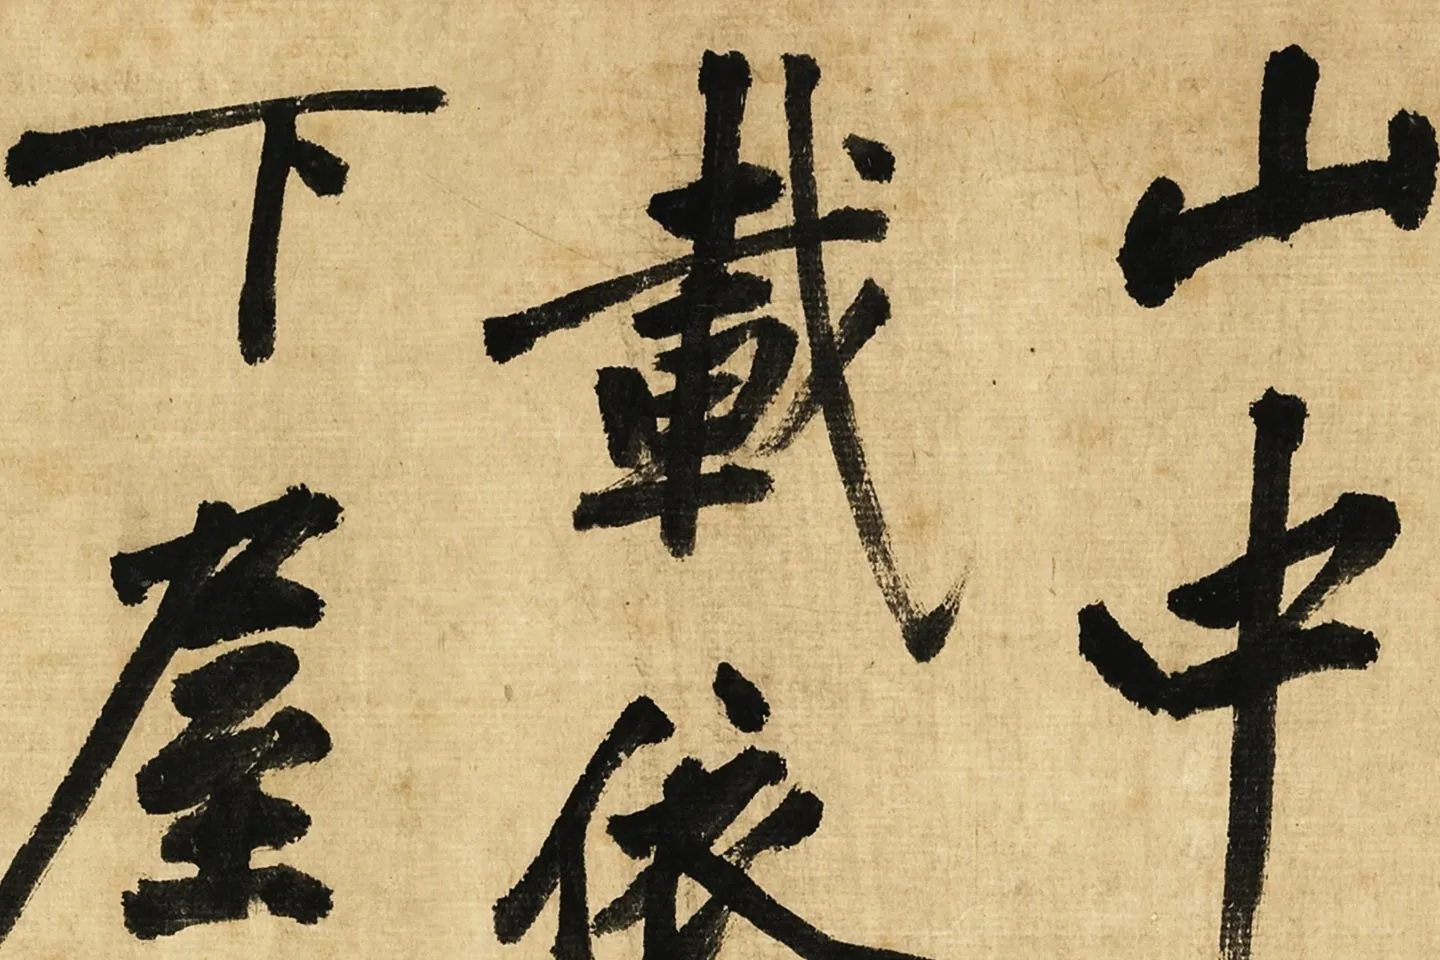 山中
載依
下屋